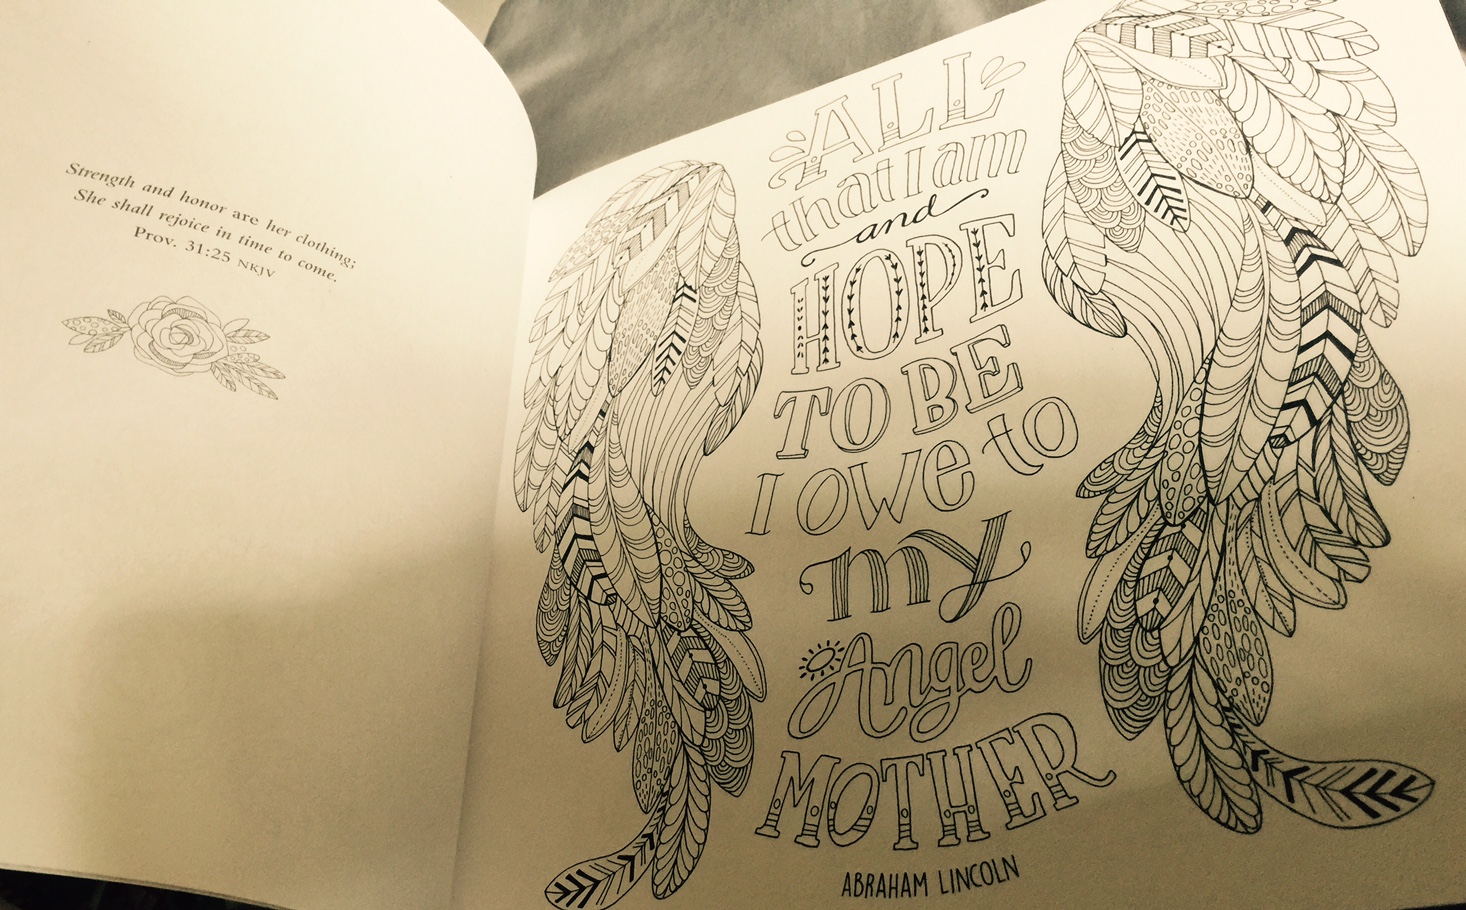 Strength and honor are her clothing;
She shall rejoice in time to come.
Prov. 31:25 NKJV
ALL
that I am
and
HOPE
TO BE
I owe to
my
Angel
MOTHER
ABRAHAM LINCOLN